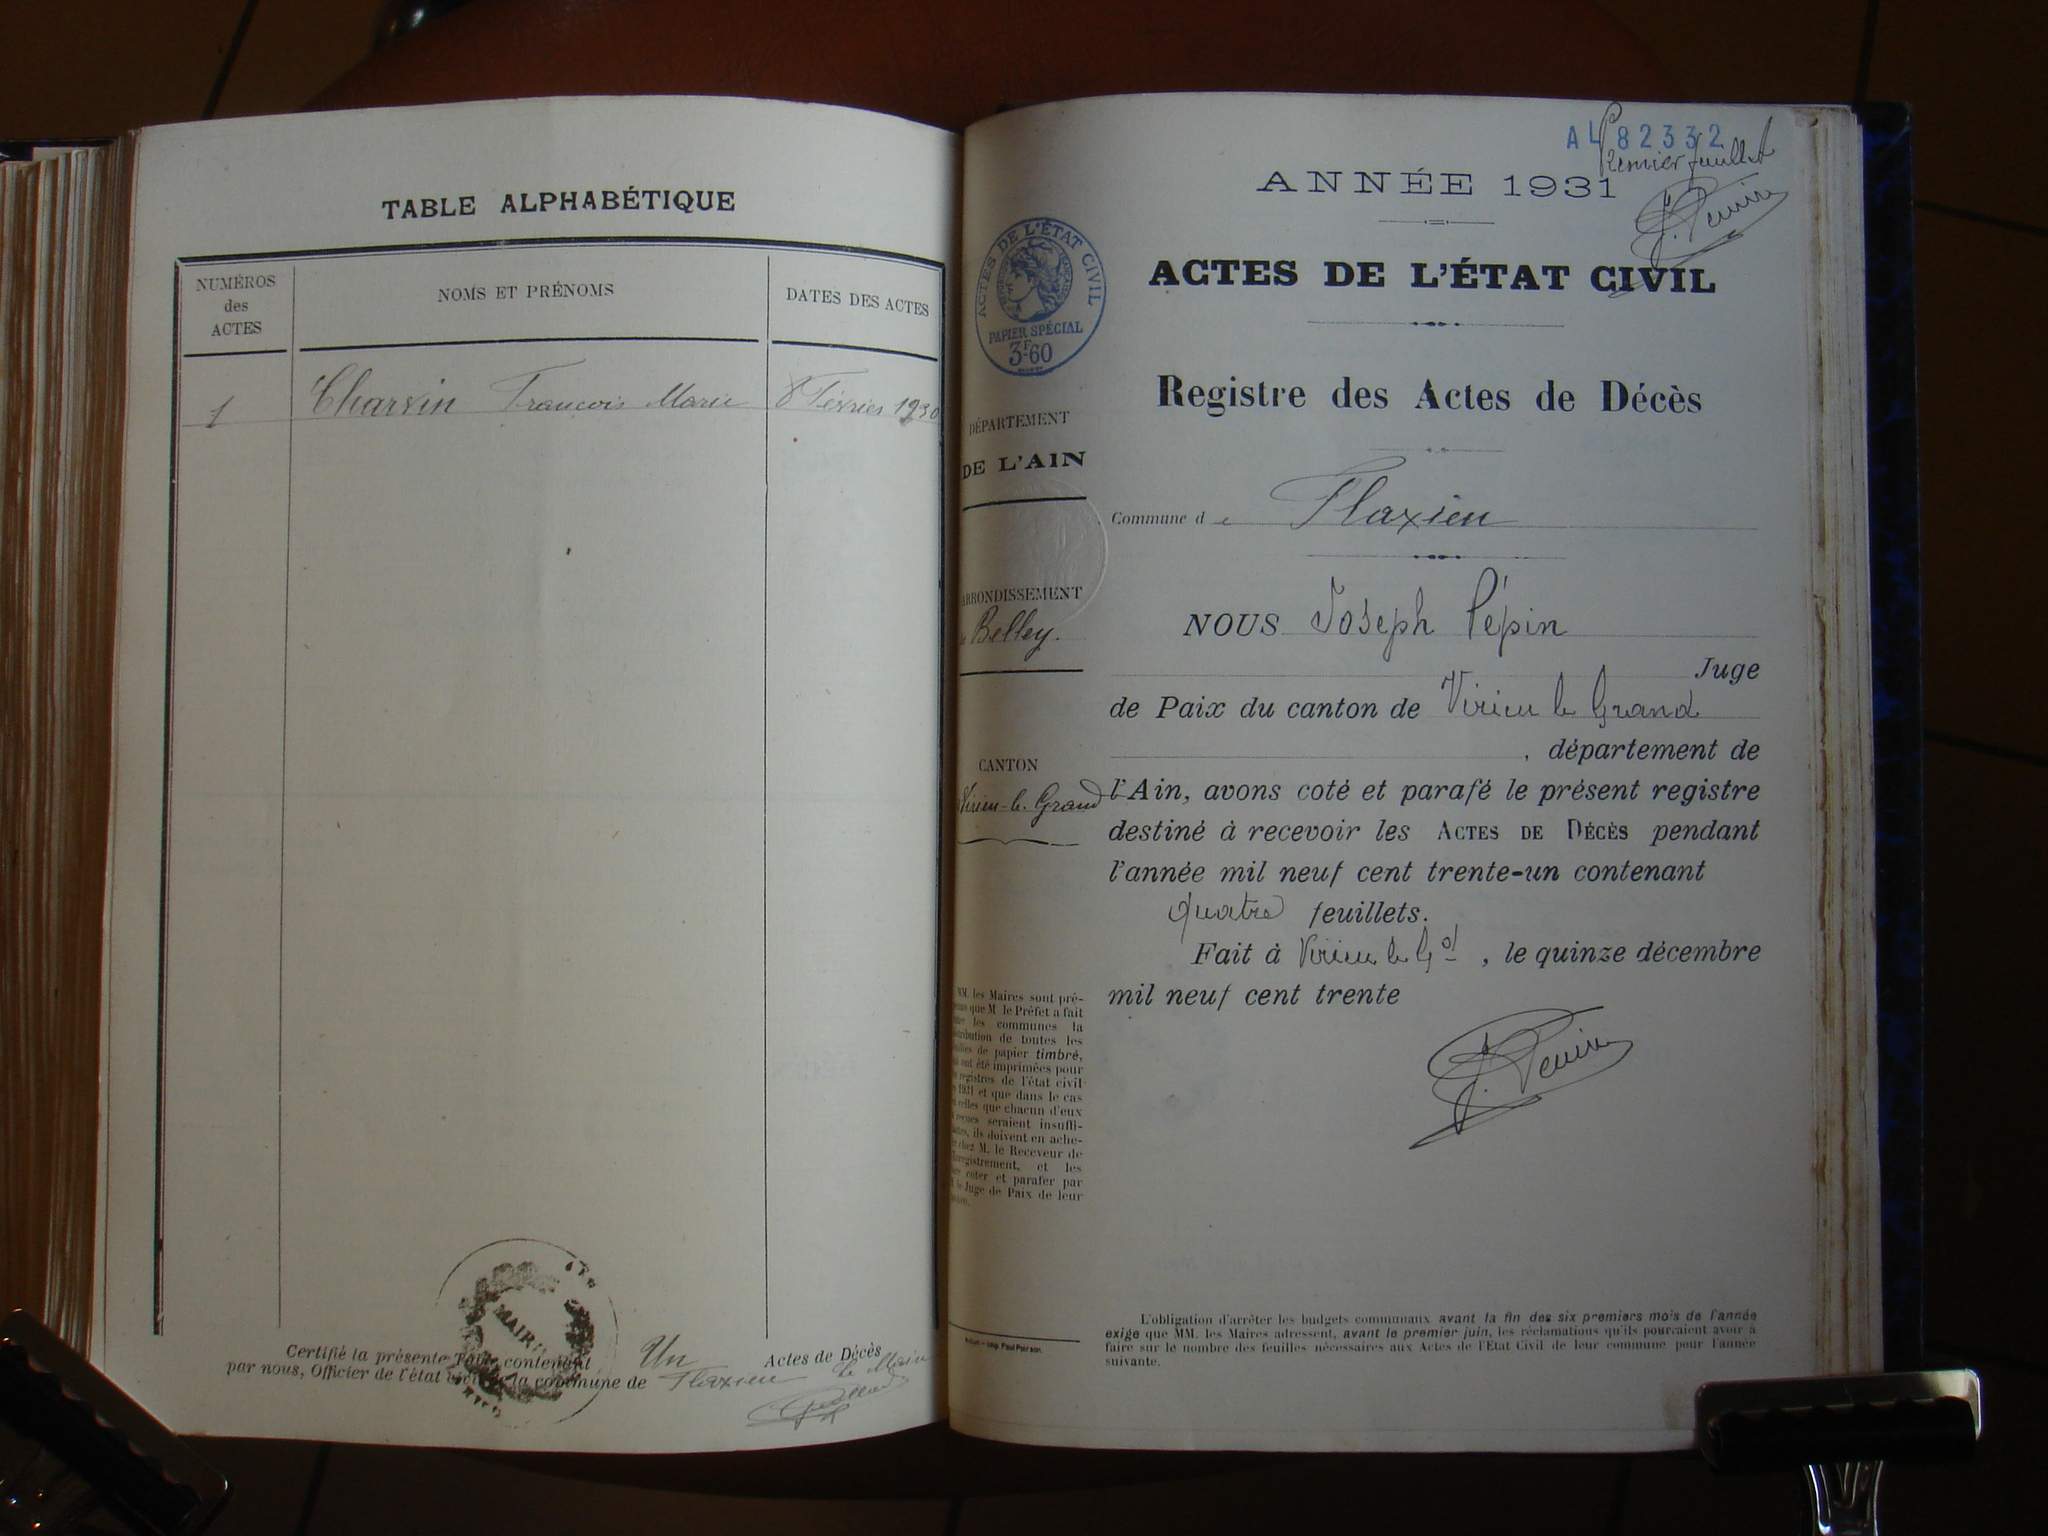 TABLE ALPHABÉTIQUE
NUMÉROS
des
ACTES
NOMS ET PRÉNOMS
DATES DES ACTES
1 Charvin François Marie 8 Février 1930
MAIRIE
Certifié la présente Table contenant Un Actes de Décès
par nous, Officier de l'état civil de la commune de Flaxieu Le Maire
AL 82332
Premier feuillet
ANNÉE 1931
ACTES DE L'ÉTAT CIVIL
PAPIER SPÉCIAL
3F60
ACTES DE L'ÉTAT CIVIL
Registre des Actes de Décès
DÉPARTEMENT
DE L'AIN
Commune de Flaxieu
ARRONDISSEMENT
de Belley.
NOUS Joseph Pépin
Juge
de Paix du canton de Virieu le Grand
, département de
CANTON
Virieu-le-Grand
l'Ain, avons coté et parafé le présent registre
destiné à recevoir les ACTES DE DÉCÈS pendant
l'année mil neuf cent trente-un contenant
quatre feuillets.
Fait à Virieu le Gd, le quinze décembre
mil neuf cent trente
J. Pépin
MM. les Maires sont pré-
que M le Préfet a fait
les communes la
distribution de toutes les
feuilles de papier timbré,
qui ont été imprimées pour
registres de l'état civil
1931 et que dans le cas
celles que chacun d'eux
seraient insuffi-
santes, ils doivent en ache-
ter chez M. le Receveur de
l'Enregistrement, et les
coter et parafer par
le Juge de Paix de leur
canton.
L'obligation d'arrêter les budgets communaux avant la fin des six premiers mois de l'année
exige que MM. les Maires adressent, avant le premier juin, les réclamations qu'ils pourraient avoir à
faire sur le nombre des feuilles nécessaires aux Actes de l'Etat Civil de leur commune pour l'année
suivante.